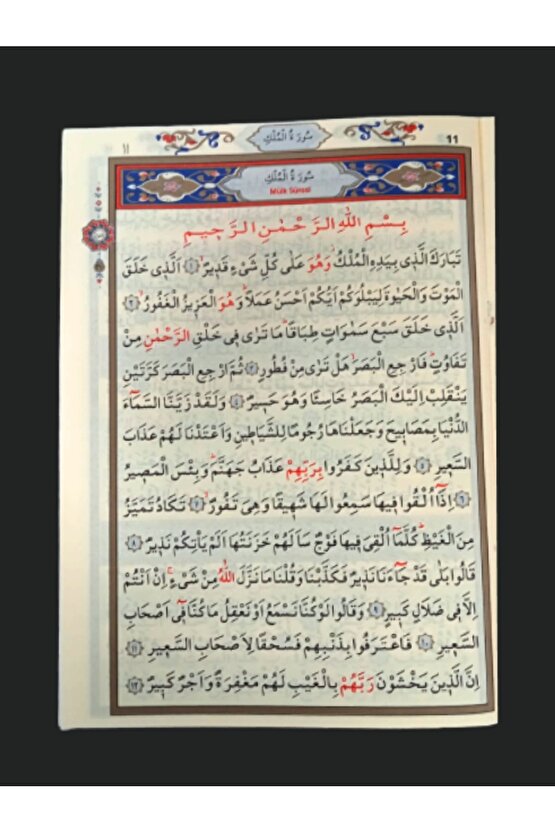 ١١ سُورَةُ الْمُلْكِ 11
سُورَةُ الْمُلْكِ
Mülk Sûresi
بِسْمِ اللّٰهِ الرَّحْمٰنِ الرَّحِيمِ
تَبَارَكَ الَّذِي بِيَدِهِ الْمُلْكُ وَهُوَ عَلٰى كُلِّ شَيْءٍ قَدِيرٌۙ ﴿١﴾ اَلَّذِي خَلَقَ
الْمَوْتَ وَالْحَيٰوةَ لِيَبْلُوَكُمْ اَيُّكُمْ اَحْسَنُ عَمَلاًۜ وَهُوَ الْعَزِيزُ الْغَفُورُۙ ﴿٢﴾
اَلَّذِي خَلَقَ سَبْعَ سَمٰوَاتٍ طِبَاقاًۜ مَا تَرٰى فِي خَلْقِ الرَّحْمٰنِ مِنْ
تَفَاوُتٍۜ فَارْجِعِ الْبَصَرَۙ هَلْ تَرٰى مِنْ فُطُورٍ ﴿٣﴾ ثُمَّ ارْجِعِ الْبَصَرَ كَرَّتَيْنِ
يَنْقَلِبْ اِلَيْكَ الْبَصَرُ خَاسِئًا وَهُوَ حَسِيرٌ ﴿٤﴾ وَلَقَدْ زَيَّنَّا السَّمَٓاءَ
الدُّنْيَا بِمَصَابِيحَ وَجَعَلْنَاهَا رُجُومًا لِلشَّيَاطِينِ وَاَعْتَدْنَا لَهُمْ عَذَابَ
السَّعِيرِ ﴿٥﴾ وَلِلَّذِينَ كَفَرُوا بِرَبِّهِمْ عَذَابُ جَهَنَّمَۜ وَبِئْسَ الْمَصِيرُ
﴿٦﴾ اِذَٓا اُلْقُوا فِيهَا سَمِعُوا لَهَا شَهِيقًا وَهِيَ تَفُورُۙ ﴿٧﴾ تَكَادُ تَمَيَّزُ
مِنَ الْغَيْظِۜ كُلَّمَٓا اُلْقِيَ فِيهَا فَوْجٌ سَاَلَهُمْ خَزَنَتُهَٓا اَلَمْ يَأْتِكُمْ نَذِيرٌ ﴿٨﴾
قَالُوا بَلٰى قَدْ جَٓاءَنَا نَذِيرٌ فَكَذَّبْنَا وَقُلْنَا مَا نَزَّلَ اللّٰهُ مِنْ شَيْءٍۚ اِنْ اَنْتُمْ
اِلَّا فِي ضَلَالٍ كَبِيرٍ ﴿٩﴾ وَقَالُوا لَوْ كُنَّا نَسْمَعُ اَوْ نَعْقِلُ مَا كُنَّا فِٓي اَصْحَابِ
السَّعِيرِ ﴿١٠﴾ فَاعْتَرَفُوا بِذَنْبِهِمْۚ فَسُحْقًا لِاَصْحَابِ السَّعِيرِ ﴿١١﴾
اِنَّ الَّذِينَ يَخْشَوْنَ رَبَّهُمْ بِالْغَيْبِ لَهُمْ مَغْفِرَةٌ وَاَجْرٌ كَبِيرٌ ﴿١٢﴾